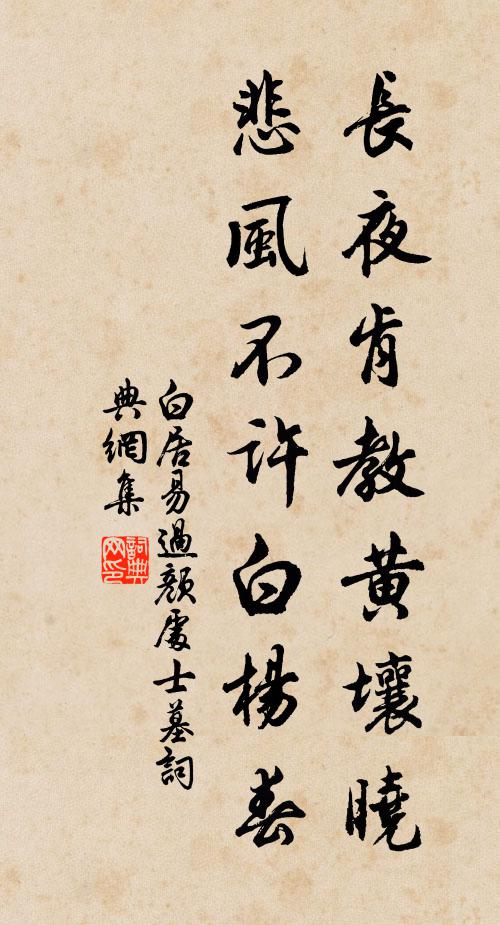 長夜肯教黃壤曉
悲風不許白楊春
白居易過顏處士墓詞
典網集
詞典網印